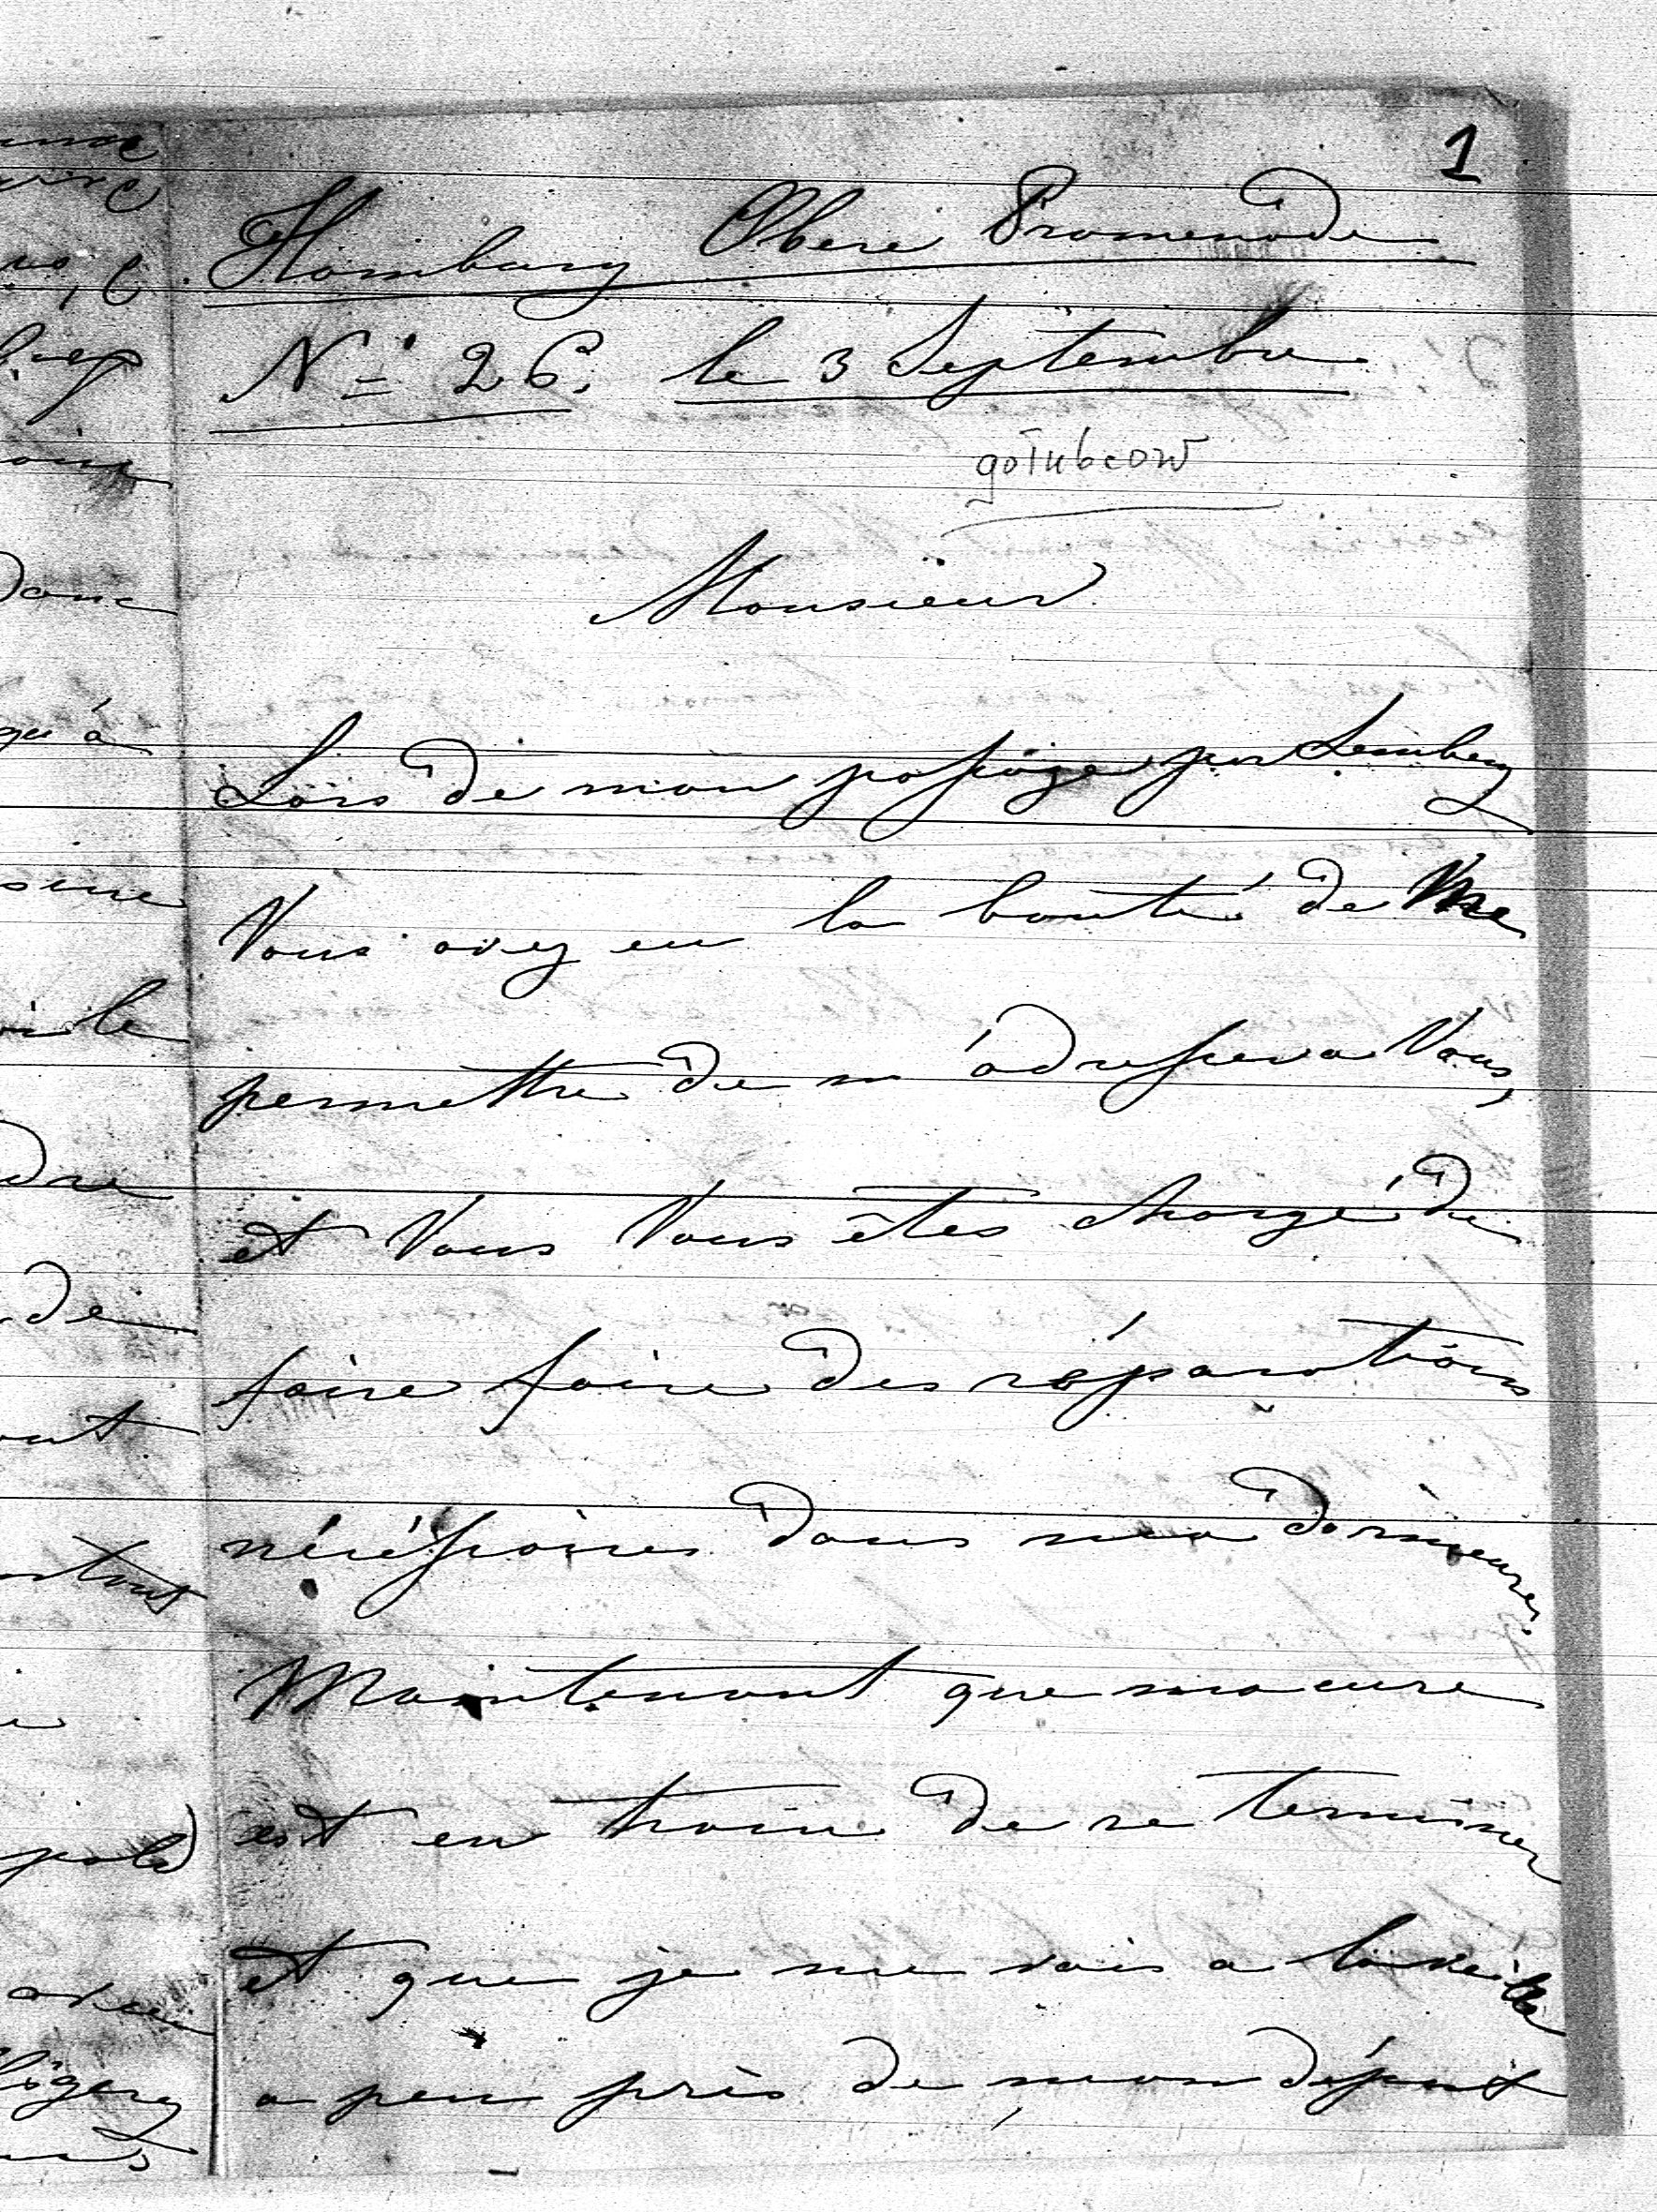 1
Hombourg Obere Promenade
No 26. le 3 Septembre
Monsieur
Lors de mon passage par Lemberg
Vous avez eu la bonté de me
permettre de m'adresser a Vous,
et Vous Vous êtes chargé de
faire faire des réparations
nécéssaires dans ma dormeuse.
Maintenant que ma cure
est en train de se terminer
et que je me vois a la veille
a peu près de mon départ
donc
qu'à
de